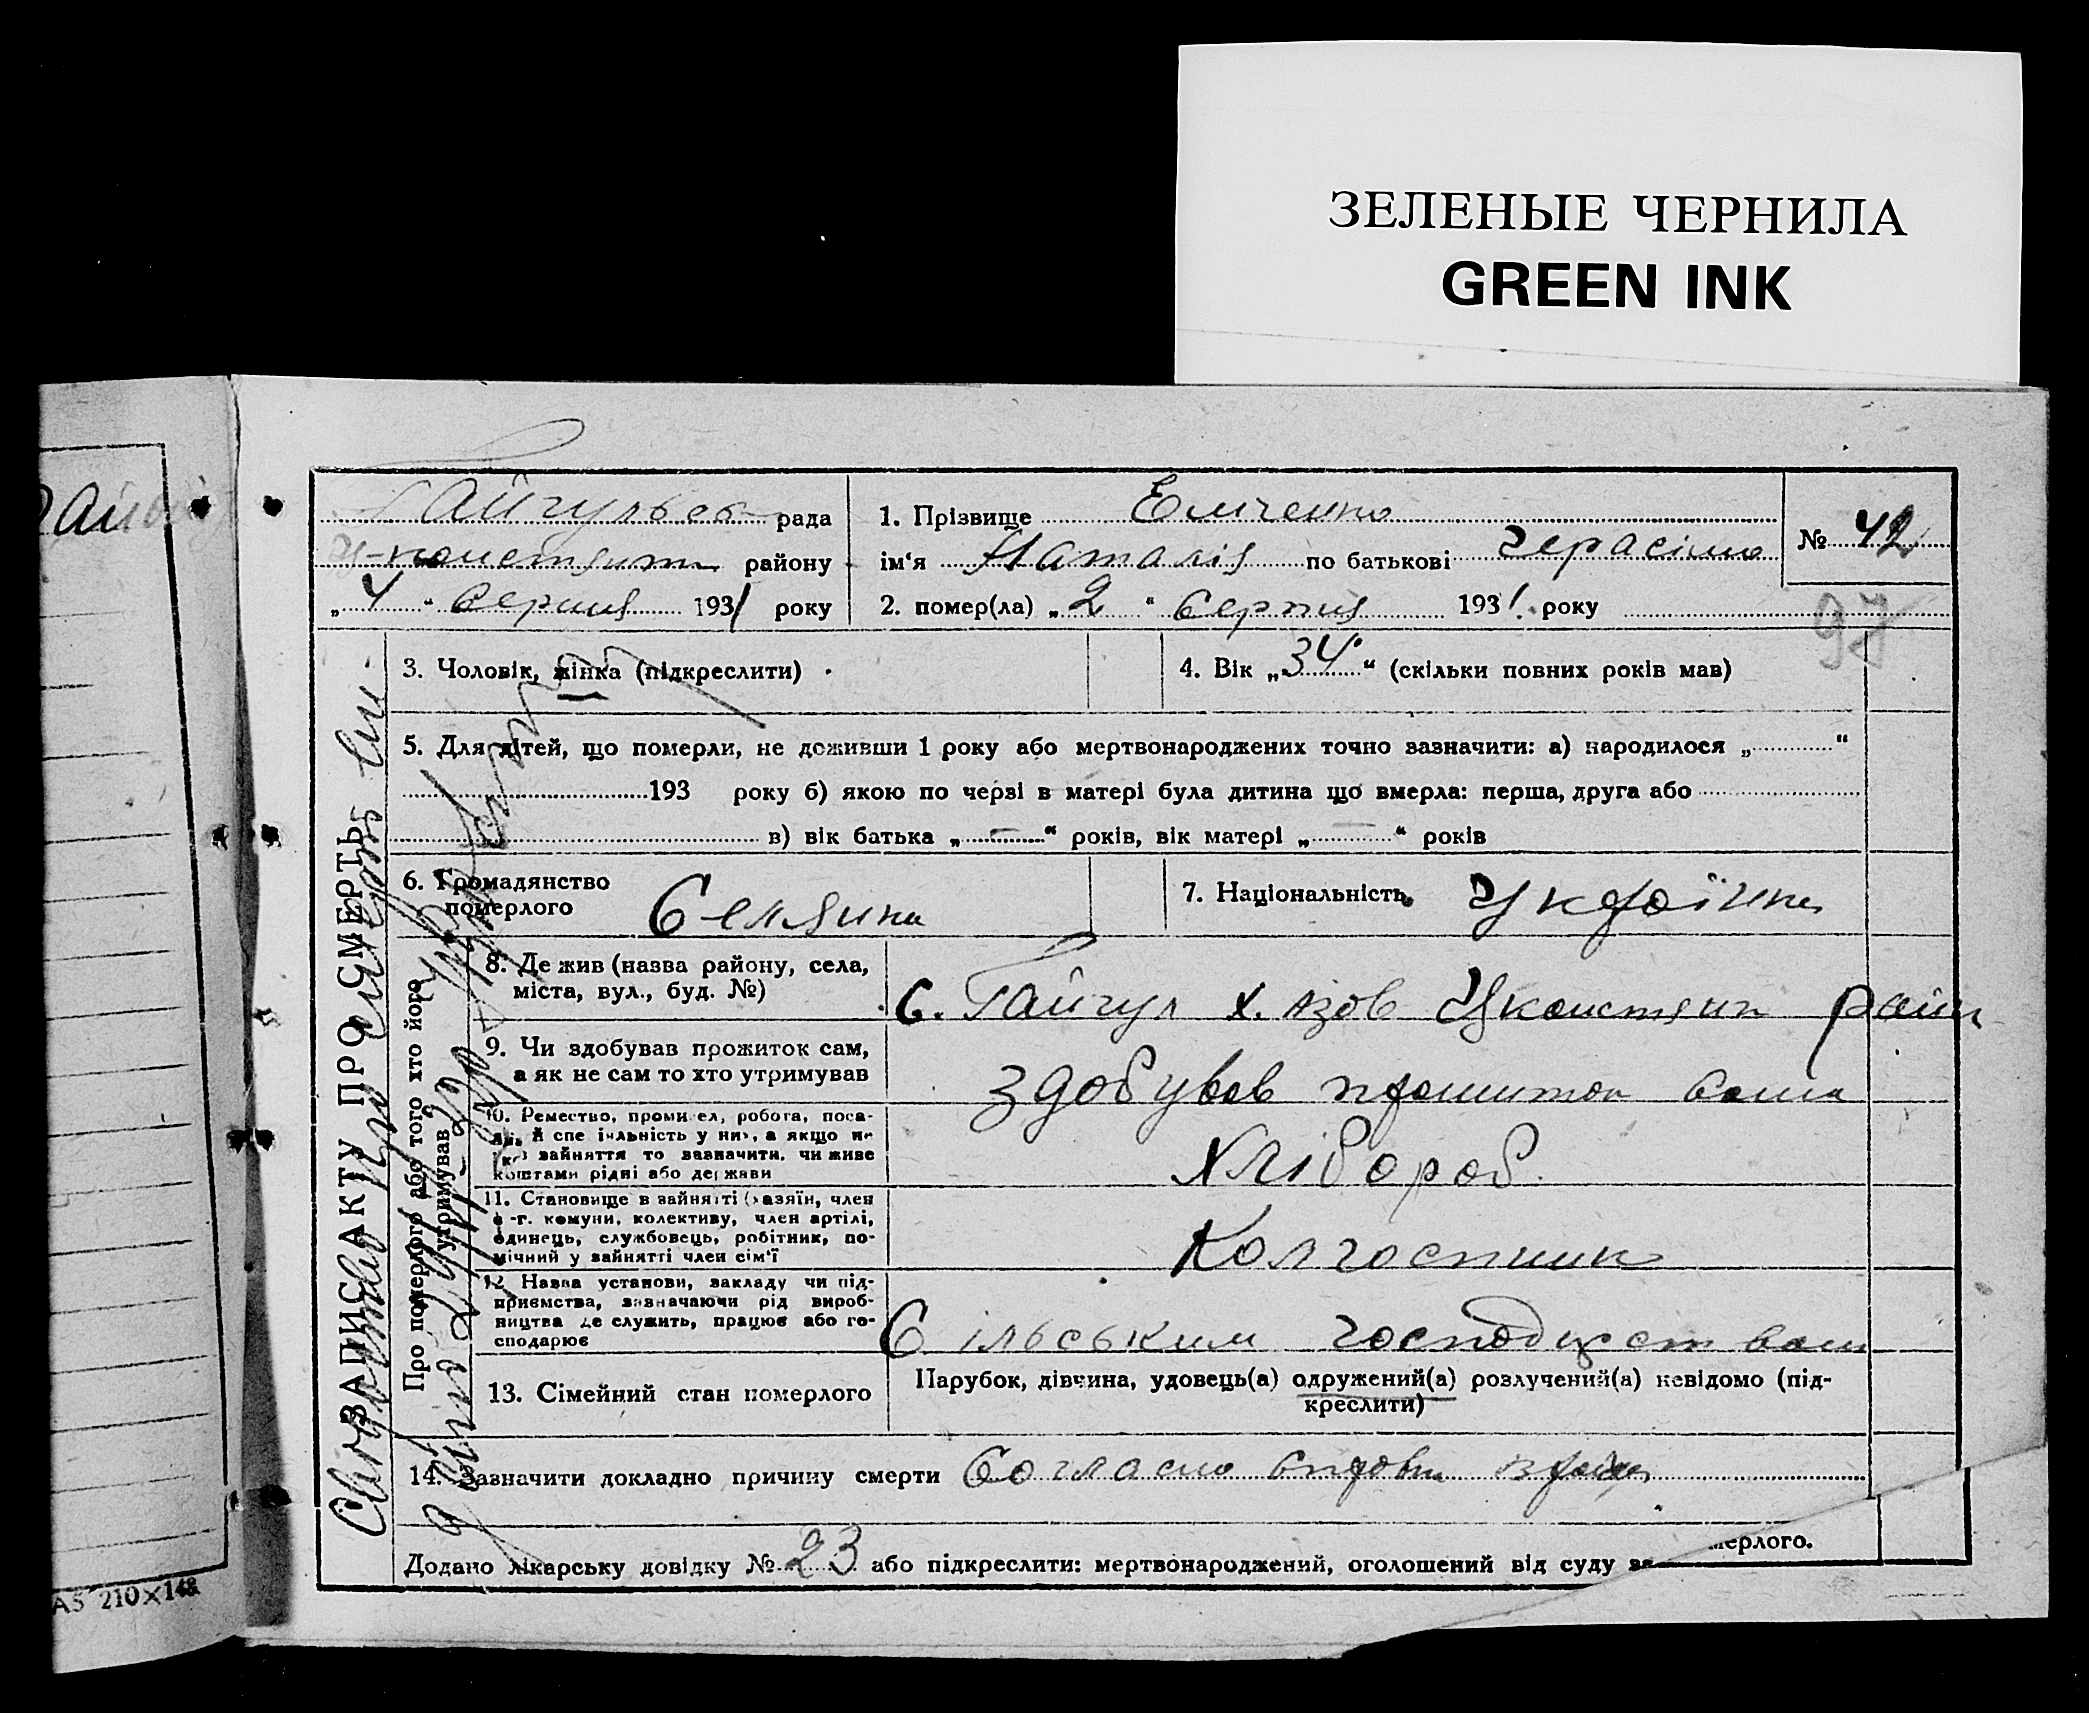 ЗЕЛЕНЫЕ ЧЕРНИЛА
GREEN INK
Гайчульськ рада
У-констянт району
„4“ Серпня 1931 року
1. Прізвище Емченко
ім‘я Наталія по батькові Герасімо
2. помер(ла) „2“ Серпня 1931. року
№ 42
97
ЗАПИС АКТУ ПРО СМЕРТЬ
3. Чоловік, жінка (підкреслити)
4. Вік „34“ (скільки повних років мав)
5. Для дітей, що померли, не доживши 1 року або мертвонароджених точно зазначити: а) народилося „ “
193 року б) якою по черзі в матері була дитина що вмерла: перша, друга або
в) вік батька „—“ років, вік матері „—“ років
6. Громадянство
померлого
Селянка
7. Національність Українка
Про померлого або того хто його
утримував
8. Де жив (назва району, села,
міста, вул., буд. №)
С. Гайчул х. Азов Уконстянт район
9. Чи здобував прожиток сам,
а як не сам то хто утримував
Здобував прошиток сама
10. Ремество, промисел, робота, поса-
да, й спеціяльність у них, а якщо не
має зайняття то зазначити, чи живе
коштами рідні або держави
Хлібороб
11. Становище в зайнятті (хазяїн, член
с.-г. комуни, колективу, член артілі,
одинець, службовець, робітник, по-
мічний у зайнятті член сім‘ї
Колгоспник
12. Назва установи, закладу чи під-
приємства, зазначаючи рід вироб-
ництва де служить, працює або го-
сподарює
Сільським господарством
13. Сімейний стан померлого
Парубок, дівчина, удовець(а) одружений(а) розлучений(а) невідомо (під-
креслити)
14. Зазначити докладно причину смерти Согласно справки врача
Додано лікарську довідку № 23 або підкреслити: мертвонароджений, оголошений від суду за
мерлого.
А5 210×148